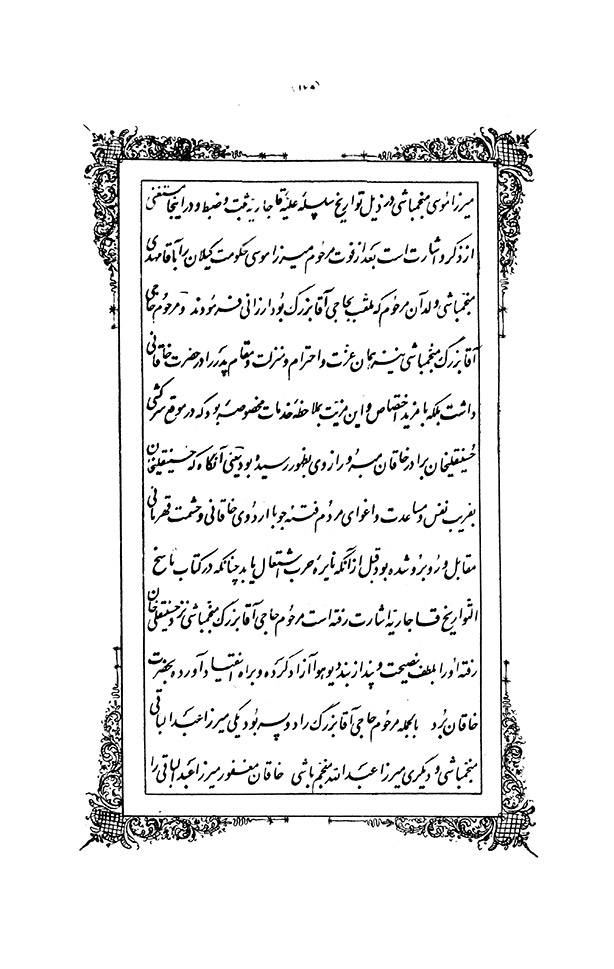 (۱۲۵)
میرزا موسی منجمباشی در ذیل تواریخ سلسلهٔ علیّهٔ قاجاریه ثبت و ضبط و در اینجا مستغنی
از ذکر و اشارت است بعد از فوت مرحوم میرزا موسی حکومت گیلان را بآقا مهدی
منجمباشی ولد آن مرحوم که ملقب بحاجی آقا بزرگ بود ارزانی فرمودند و مرحوم حاجی
آقا بزرگ منجمباشی نیز همان عزّت و احترام و منزلت و مقام پدر را در حضرت خاقانی
داشت بلکه با مزید اختصاص و این مزیّت بملاحظهٔ خدمات مخصوصه بود که در موقع سرکشی
حسینقلیخان برادر خاقان مبرور از وی بظهور رسیده بود یعنی آنگاه که حسینقلیخان
بفریب نفس و مساعدت و اغوای مردم فتنه جو با اردوی خاقانی و حشمت قهرمانی
مقابل و روبرو شده بود قبل از آنکه نایرهٔ حرب اشتعال یابد چنانکه در کتاب ناسخ
التّواریخ قاجاریه اشارت رفته است مرحوم حاجی آقا بزرک منجمباشی نزد حسینقلی خان
رفته او را بلطف نصیحت و پند از بند دیو هوا آزاد کرده و براه انقیاد آورده بحضرت
خاقان برد بالجمله مرحوم حاجی آقا بزرگ را دو پسر بود یکی میرزا عبدالباقی
منجمباشی و دیگری میرزا عبدالله منجم باشی خاقان مغفور میرزا عبدالباقی را